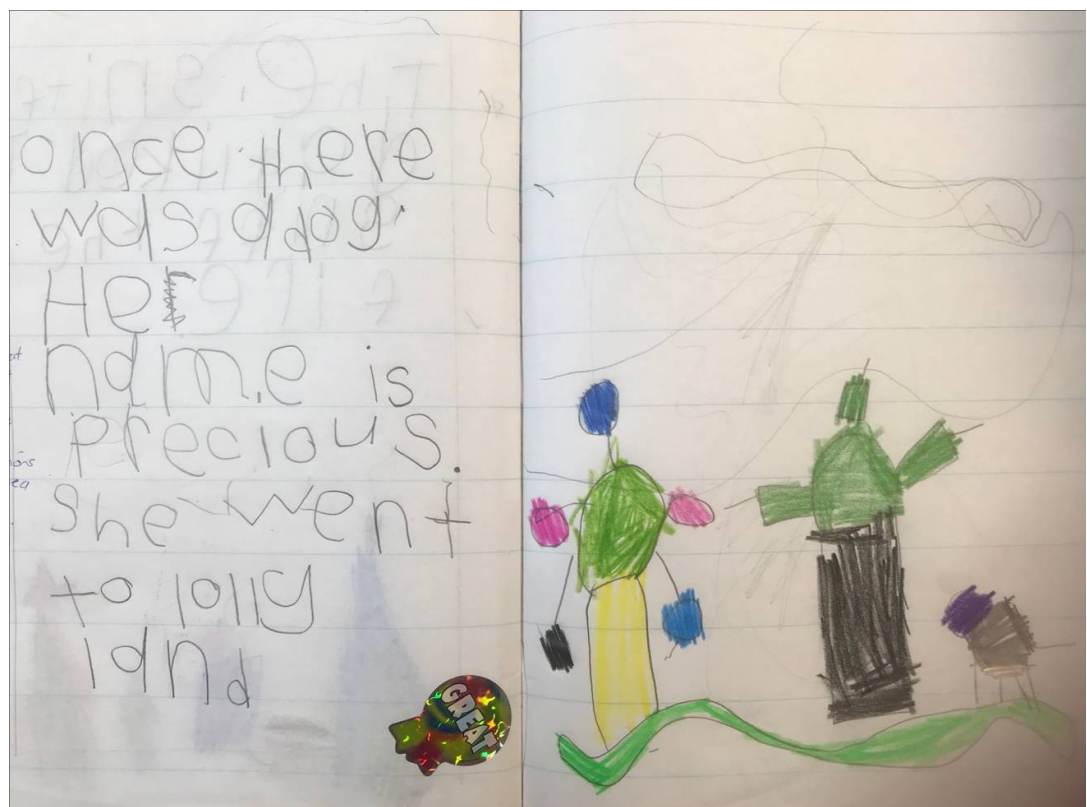 once there
was a dog.
He
name is
precious.
she went
to lolly
land
GREAT